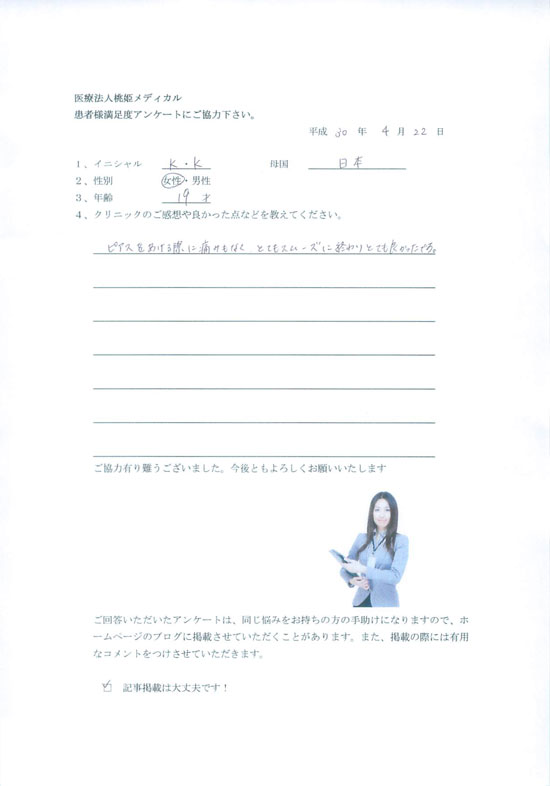 医療法人桃姫メディカル
患者様満足度アンケートにご協力下さい。
平成 30 年 4 月 22 日
1、イニシャル K・K 母国 日本
2、性別 女性・男性
3、年齢 19 才
4、クリニックのご感想や良かった点などを教えてください。
ピアスをあける際に痛みもなく とてもスムーズに終わりとても良かったです。
ご協力有り難うございました。今後ともよろしくお願いいたします
ご回答いただいたアンケートは、同じ悩みをお持ちの方の手助けになりますので、ホ
ームページのブログに掲載させていただくことがあります。また、掲載の際には有用
なコメントをつけさせていただきます。
記事掲載は大丈夫です！